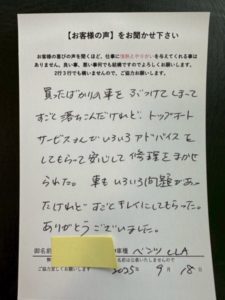 【お客様の声】をお聞かせ下さい
お客様の喜びの声を聞くほど、仕事に情熱とやりがいを与えてくれる事は
ありません。良い事、悪い事何でも結構ですのでよろしくお願いします。
2行3行でも構いませんので、ご協力お願いします。
買ったばかりの車をぶつけてしまって
すごく落ちこんだけれど、トップオート
サービスさんでいろいろアドバイスを
してもらって安心して修理をまかせ
られた。車もいろいろ問題があっ
たけれどすごくキレイにしてもらった。
ありがとうございました。
御名前 車種 ベンツ CLA
名前は公表いたしませんので
ご協力宜しくお願い 2025年 9月 18日